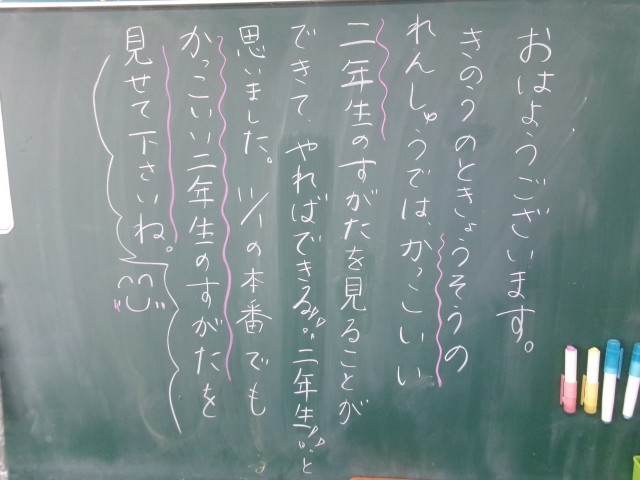 おはようございます。
きのうのときょうそうの
れんしゅうでは、かっこいい
二年生のすがたを見ることが
できて、やればできる!!二年生!!と
思いました。11/1の本番でも
かっこいい二年生のすがたを
見せて下さいね。